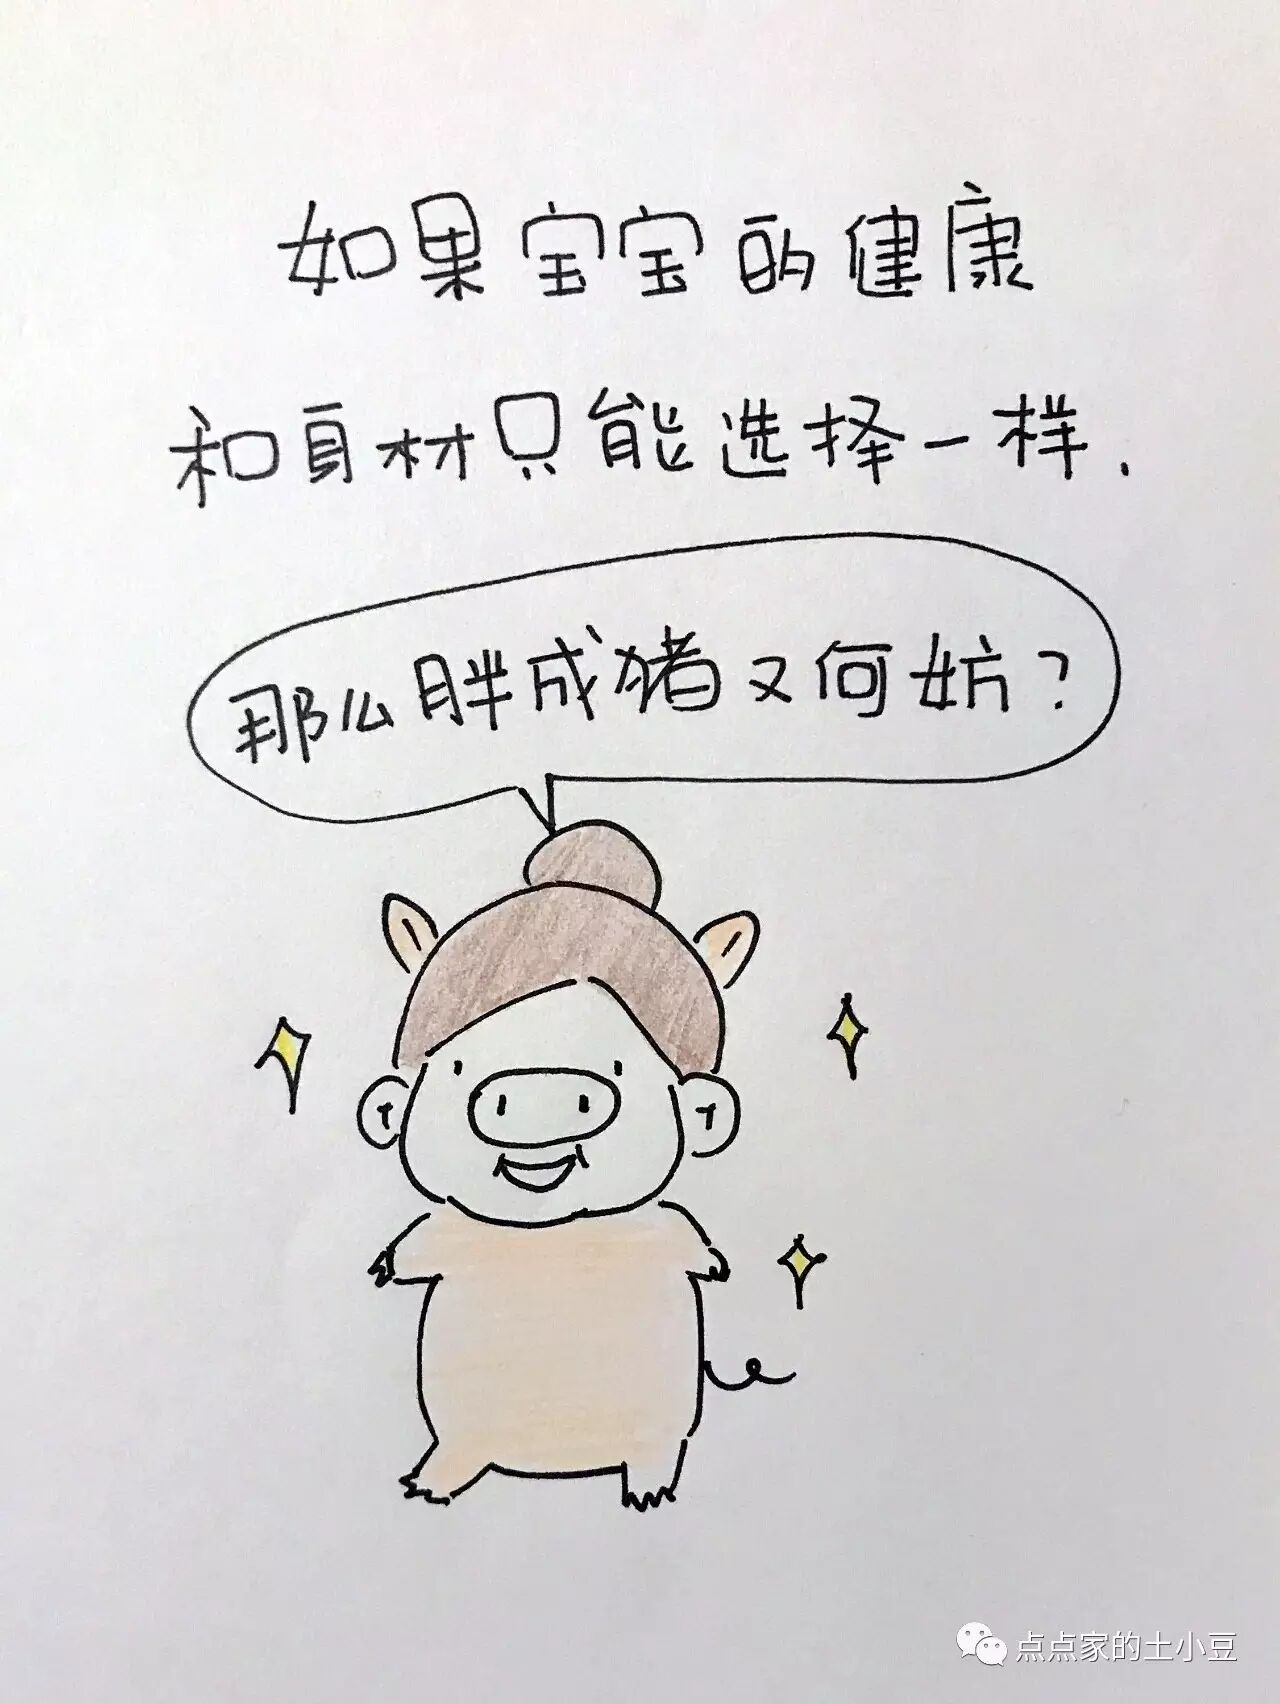 如果宝宝的健康
和身材只能选择一样.
那么胖成猪又何妨?
点点家的土小豆